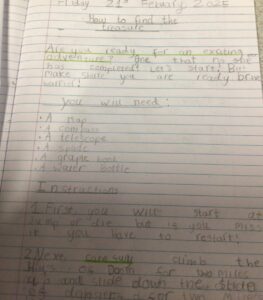 Friday 21st Febuary 2025
How to find the
treasure
Are you ready for an exciting
adventure? One that no one
has completed! Let's start! But
make sure you are ready brave
you will need:
• A map
• A compass
• A telescope
• A spade
• A graple hook
• A water bottle
Instructions
1. First, you will start at
Jump or die but is you miss
it you have to restart!
2. Next, carefully climb the
of Doom for two miles
and slide down the slide
of